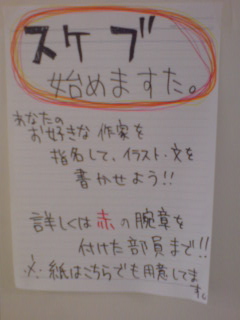 スケブ
始めますた。
あなたの
お好きな作家を
指名して、イラスト・文を
書かせよう!!
詳しくは赤の腕章を
付けた部員まで!!
※紙はこちらでも用意してま
す。